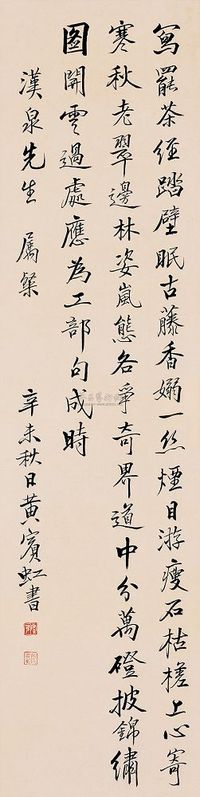 寫罷茶經踏壁眠古藤香嫋一丝煙目游瘦石枯槎上心寄
寒秋老翠邊林姿嵐態各爭奇界道中分萬磴披錦繡
圖開雲過處應為工部句成時
漢泉先生 屬粲
辛未秋日黃賓虹書